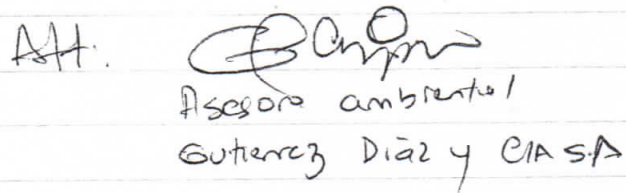 Att.
Asesora ambiental
Gutierrez Díaz y CIA S.A